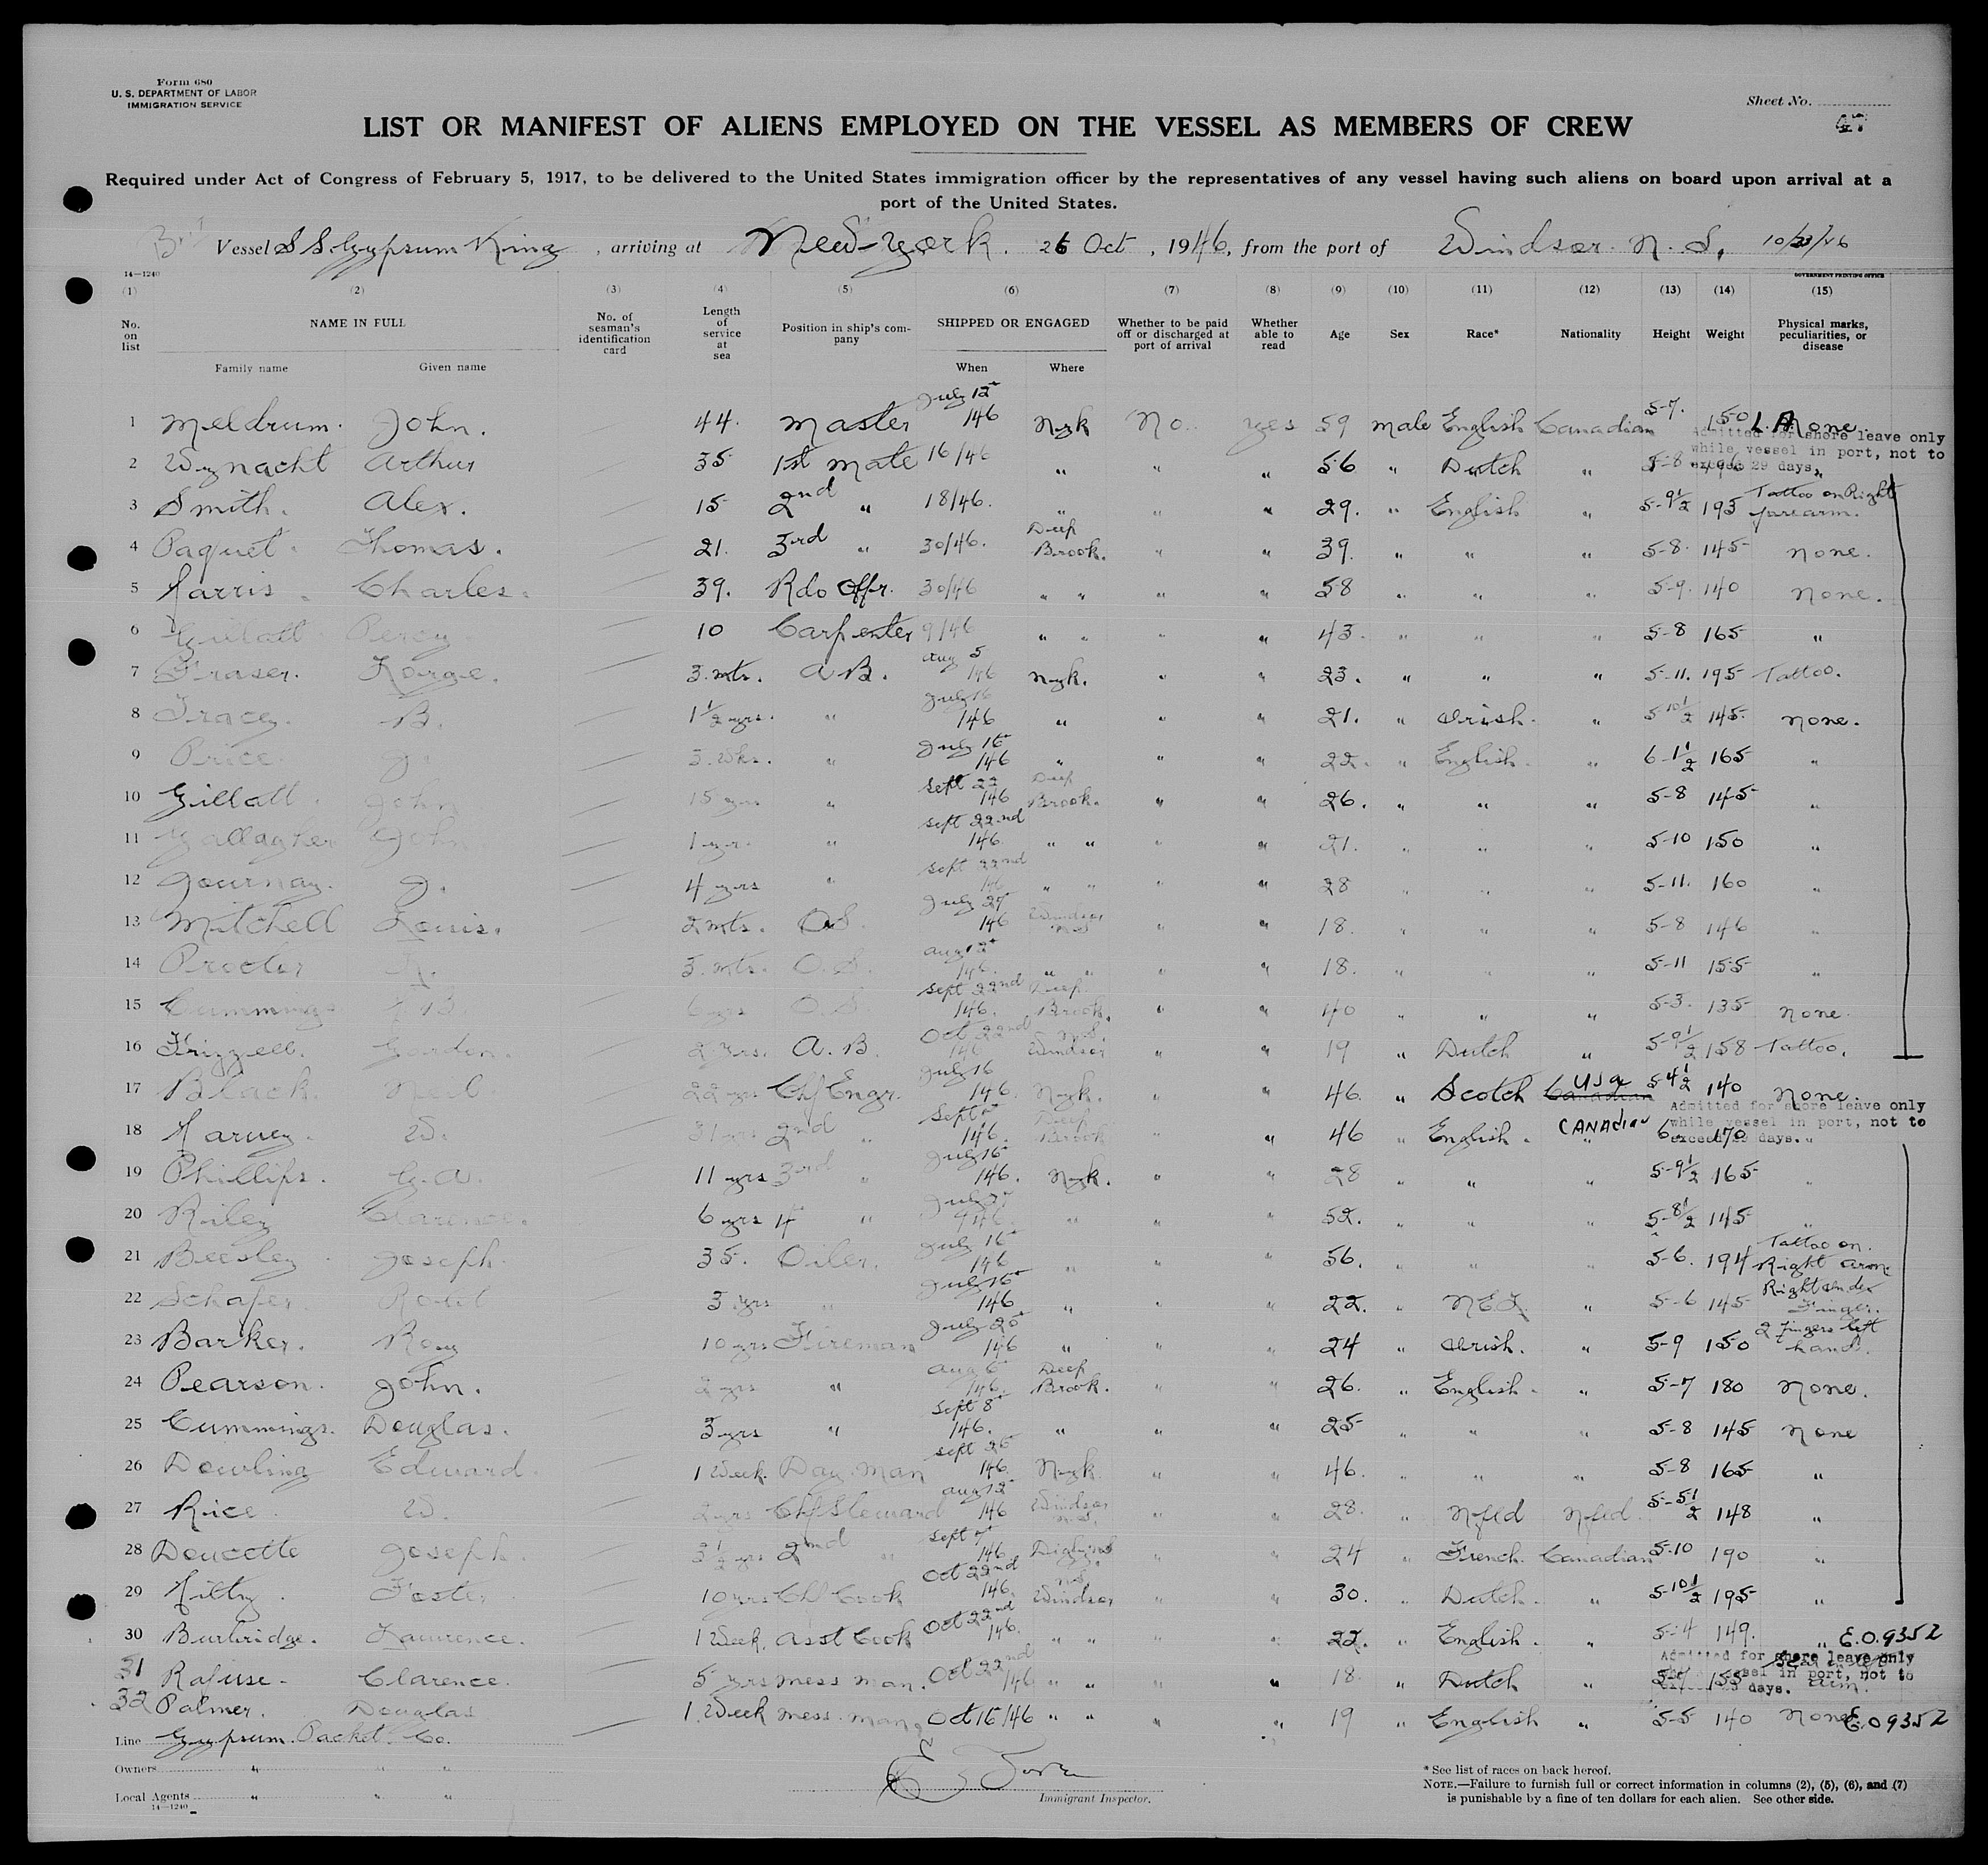 Form 680
U. S. DEPARTMENT OF LABOR
IMMIGRATION SERVICE
Sheet No.
47
LIST OR MANIFEST OF ALIENS EMPLOYED ON THE VESSEL AS MEMBERS OF CREW
Required under Act of Congress of February 5, 1917, to be delivered to the United States immigration officer by the representatives of any vessel having such aliens on board upon arrival at a
port of the United States.
Vessel S S Gypsum King, arriving at New York. 26 Oct, 1946, from the port of Windsor N. S. 10/23/46
14—1240
GOVERNMENT PRINTING OFFICE
(1) (2) (3) (4) (5) (6) (7) (8) (9) (10) (11) (12) (13) (14) (15)
No. on list NAME IN FULL No. of seaman's identification card Length of service at sea Position in ship's company SHIPPED OR ENGAGED Whether to be paid off or discharged at port of arrival Whether able to read Age Sex Race* Nationality Height Weight Physical marks, peculiarities, or disease
Family name Given name When Where
1 Meldrum. John. 44. Master July 12 /46 Nyk No. yes 59 male English Canadian 5-7. 150 None.
Admitted for shore leave only while vessel in port, not to exceed 29 days.
2 Weynacht Arthur 35 1st Mate 16/46 " " " 56 " Dutch " 5-8 196 "
3 Smith. Alex. 15 2nd " 18/46. " " " 29. " English " 5-9½ 193 Tattoo on Right forearm.
4 Paquet. Thomas. 21. 3rd " 30/46. Deep Brook. " " 39. " " " 5-8. 145 None.
5 Harris. Charles. 39. Rdo Offr. 30/46 " " " " 58 " " " 5-9. 140 None.
6 Gillatt Percy 10 Carpenter 9/46 " " " " 43. " " " 5-8 165 "
7 Fraser. George. 3. mts. A B. Aug 5 /46 Nyk. " " 23. " " " 5-11. 195 Tattoo.
8 Tracey. B. 1½ yrs. " July 16 /46 " " " 21. " Irish. " 5-10½ 145. None.
9 Price. J. 3. Wks. " July 15 /46 " " " 22. " English. " 6-1½ 165 "
10 Gillatt. John 15 yrs " Sept 22 /46 Deep Brook. " " 26. " " " 5-8 145 "
11 Gallagher John 1 yr. " Sept 22nd /46 " " " " 21. " " " 5-10 150 "
12 Gournay. J. 4 yrs " Sept 22nd /46 " " " " 28 " " " 5-11. 160 "
13 Mitchell Louis. 2 mts. O.S. July 27 /46 Windsor N.S. " " 18. " " " 5-8 146 "
14 Procter 3. mts. O. S. Aug 12 /46. " " " " 18. " " " 5-11 155 "
15 Cummings 6 yrs O. S Sept 22nd /46. Deep Brook. " " 40 " " " 5-3. 135 None.
16 Frizzell. Gordon. 2 yrs. A. B. Oct 22nd /46 N.S. Windsor " " 19 " Dutch " 5-9½ 158 Tattoo.
17 Black. Neil 22 yrs Chf Engr. July 16 /46. Nyk. " " 46. " Scotch USA Canadian 5-4½ 140 None.
Admitted for shore leave only while vessel in port, not to exceed 29 days.
18 Harvey. W. 31 yrs 2nd " Sept /46. Deep Brook " " 46 " English. CANADian 6. 170 "
19 Phillips. G. A. 11 yrs 3rd " July 15 /46. Nyk. " " 28 " " " 5-9½ 165 "
20 Riley Clarence. 6 yrs 4 " July /46. " " " 52. " " " 5-8½ 145 "
21 Beesley Joseph. 35. Oiler. July 15 /46 " " " 56. " " " 5-6. 194 Tattoo on. Right arm.
22 Schafer Robt 3 yrs " July 15 /46 " " " 22. " " 5-6 145 Right Finger.
23 Barker. Roy 10 yrs Fireman July 20 /46 " " " 24 " Irish. " 5-9 150 2 fingers left hand.
24 Pearson. John. 2 yrs " Aug 6 /46. Deep Brook. " " 26. " English. " 5-7 180 None.
25 Cummings. Douglas. 3 yrs " Sept 8 /46. " " " 25 " " " 5-8 145 None
26 Dowling Edward. 1 Week. Day Man Sept 26 /46. Nyk " " 46. " " " 5-8 165 "
27 Rice. W. 2 yrs Chf Steward Aug 12 /46 Windsor N.S. " " 28. " Nfld Nfld. 5-5½ 148 "
28 Doucette Joseph. 3½ yrs 2nd " Sept /46 " " 24 " French. Canadian 5-10 190 "
29 Foster 10 yrs Chf Cook Oct 22nd /46. N.S. Windsor " " 30. " Dutch. " 5-10½ 195 "
30 Burbridge. Lawrence. 1 Week. Asst Cook Oct 22nd /46. " " " " 22. " English. " 5-4 149. " E.O. 9352
Admitted for shore leave only vessel in port, not to days.
31 Rafuse. Clarence. 5 yrs mess man. Oct 22nd /46 " " " " 18. " Dutch " 5-7 155 arm.
32 Palmer. Douglas 1. Week mess. man. Oct 15/46 " " " " 19 " English " 5-5 140 None. E.O 9352
Line Gypsum. Packet. Co.
Owners " " "
Local Agents " " "
14—1240
Immigrant Inspector.
* See list of races on back hereof.
NOTE.—Failure to furnish full or correct information in columns (2), (5), (6), and (7)
is punishable by a fine of ten dollars for each alien. See other side.